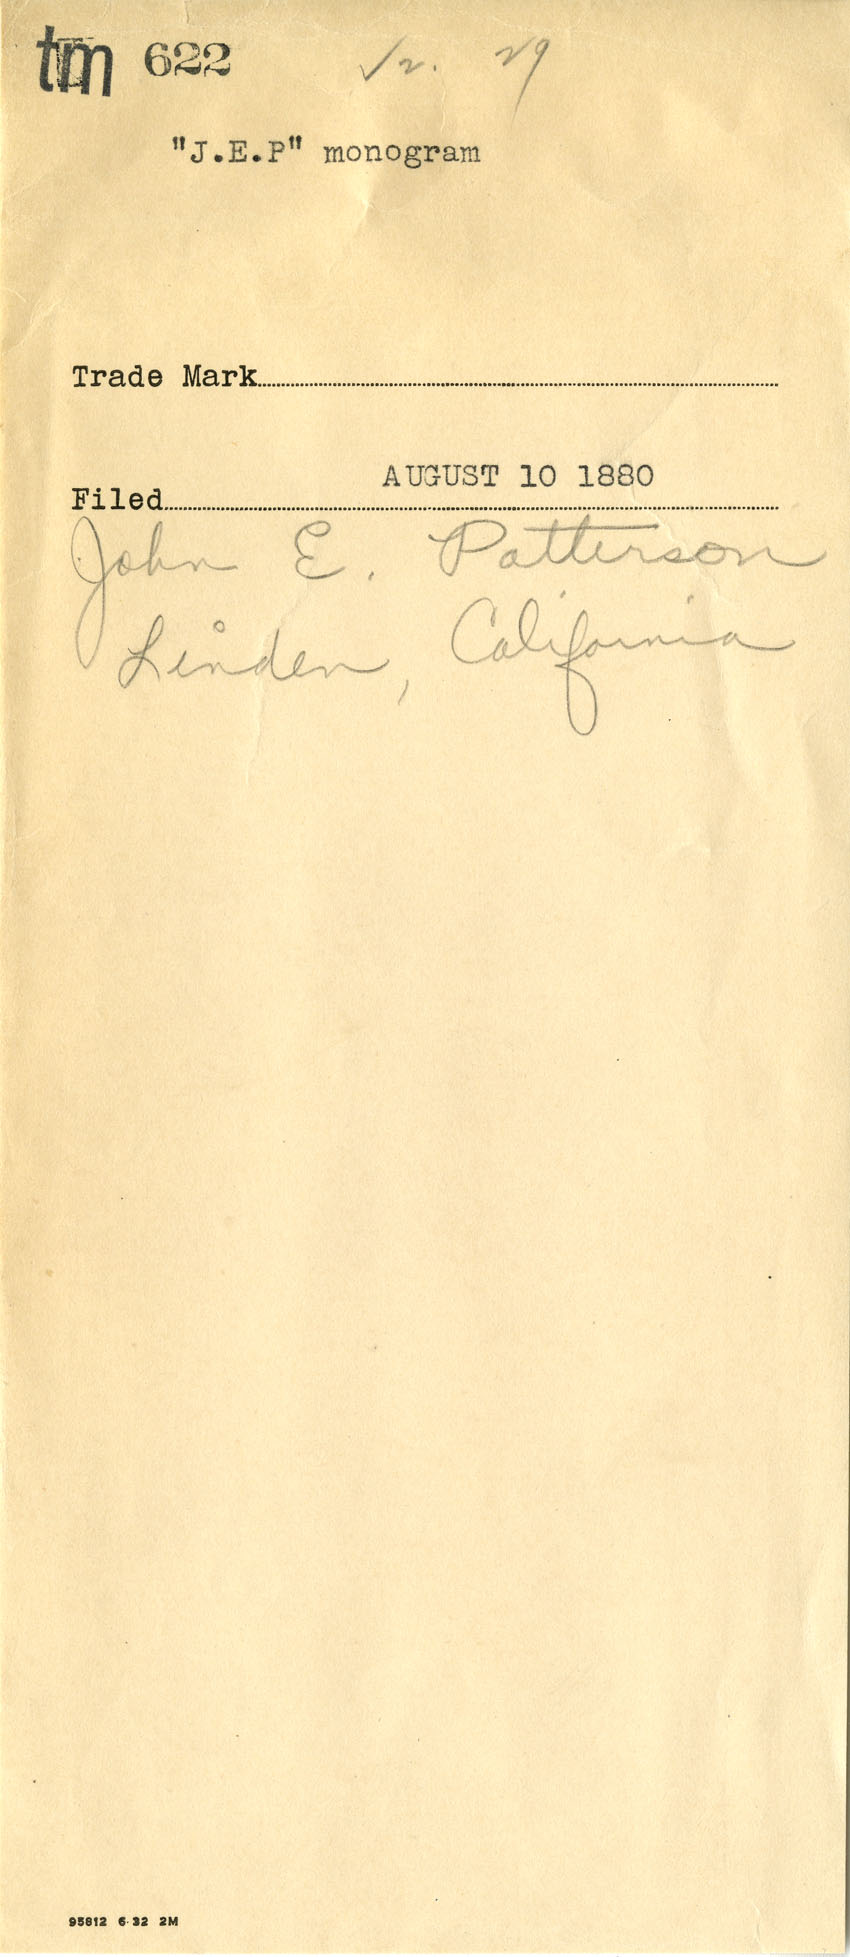 tm 622
"J.E.P" monogram
Trade Mark
AUGUST 10 1880
Filed
John E. Patterson
Linden, California
95812 6-32 2M